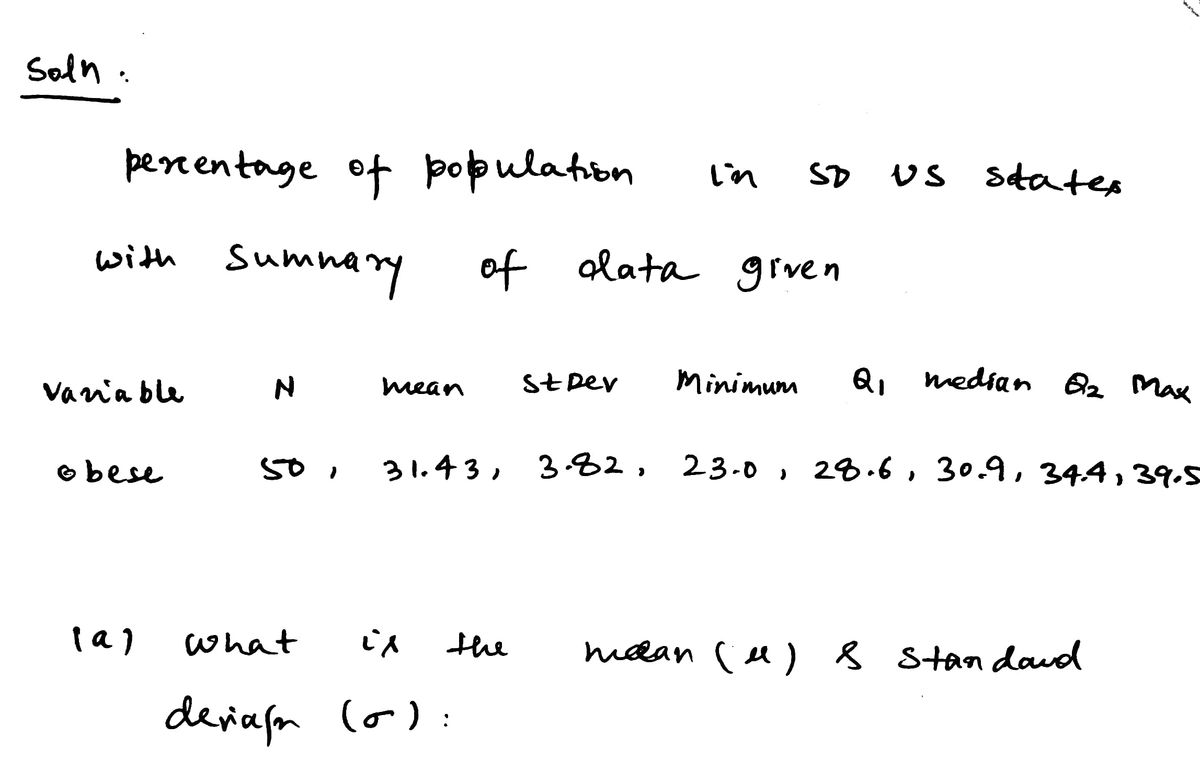 Soln :
percentage of population in 50 US states
with Sumnary of data given
Variable N mean StDev Minimum Q1 median Q2 Max
obese 50, 31.43, 3.82, 23.0, 28.6, 30.9, 34.4, 39.5
(a) what is the mean (μ) & standard
(σ) :